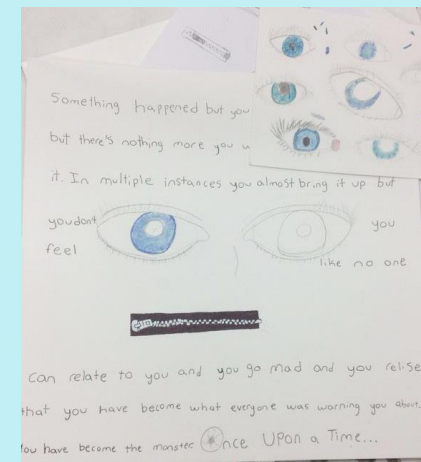 Something happened but you
but there's nothing more you w
it. In multiple instances you almost bring it up but
you dont you
feel like no one
can relate to you and you go mad and you relise
that you have become what everyone was worning you about.
You have become the monster Once UPON a Time...